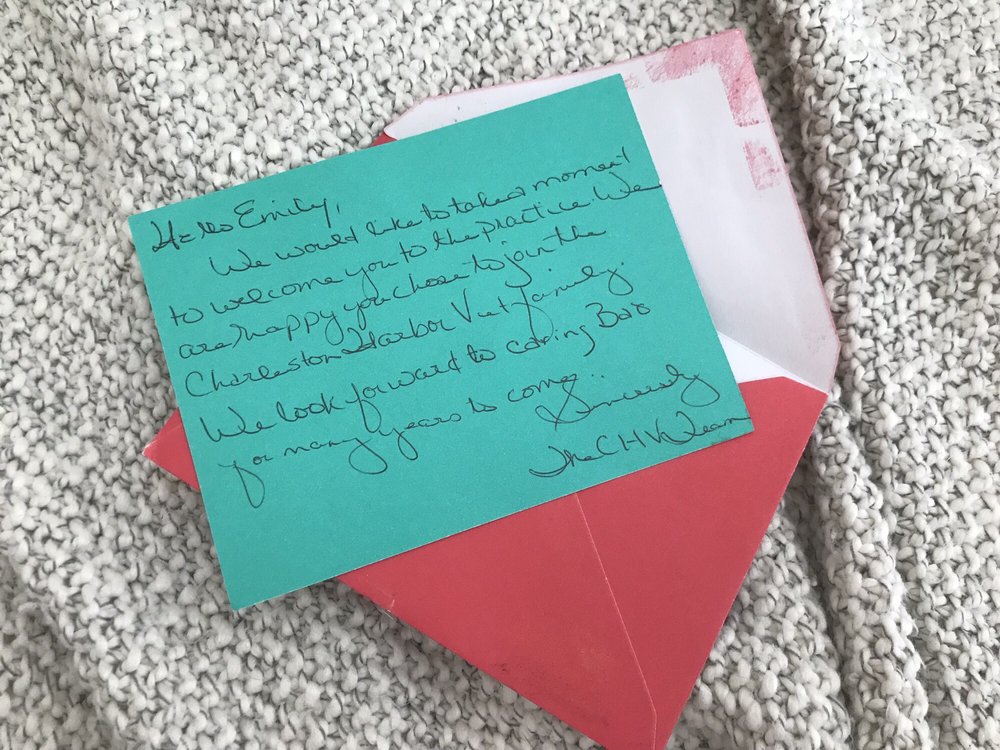 Hello Emily,
We would like to take a moment
to welcome you to the practice. We
are happy you chose to join the
Charleston Harbor Vet family.
We look forward to caring Bao
for many years to come..
Sincerely
The CHV Team